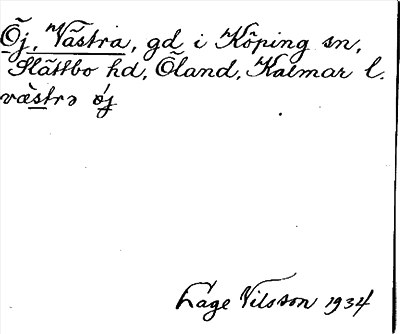 Öj, Västra, gd i Köping sn,
Slättbo hd, Öland, Kalmar l.
væ̀strə ǿj
Låge Nilsson 1934